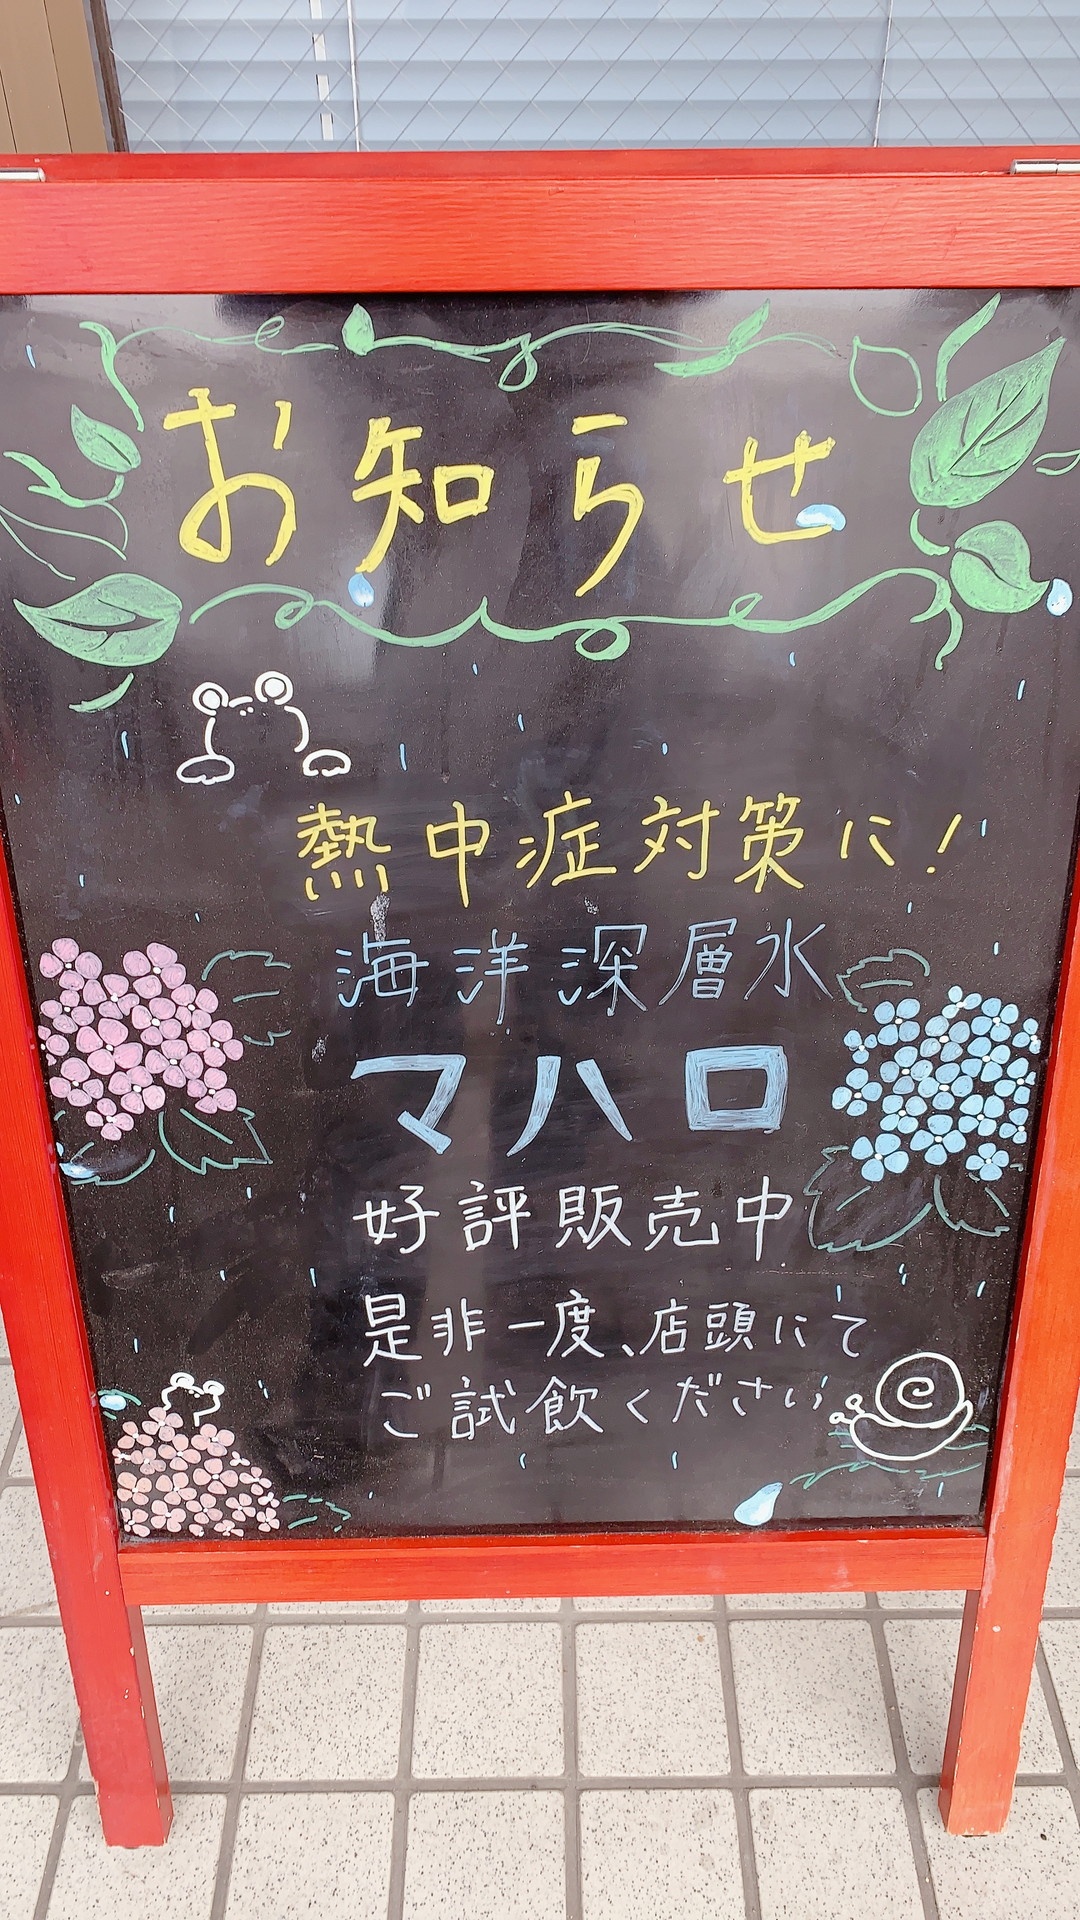 お知らせ
熱中症対策に!
海洋深層水
マハロ
好評販売中
是非一度、店頭にて
ご試飲ください